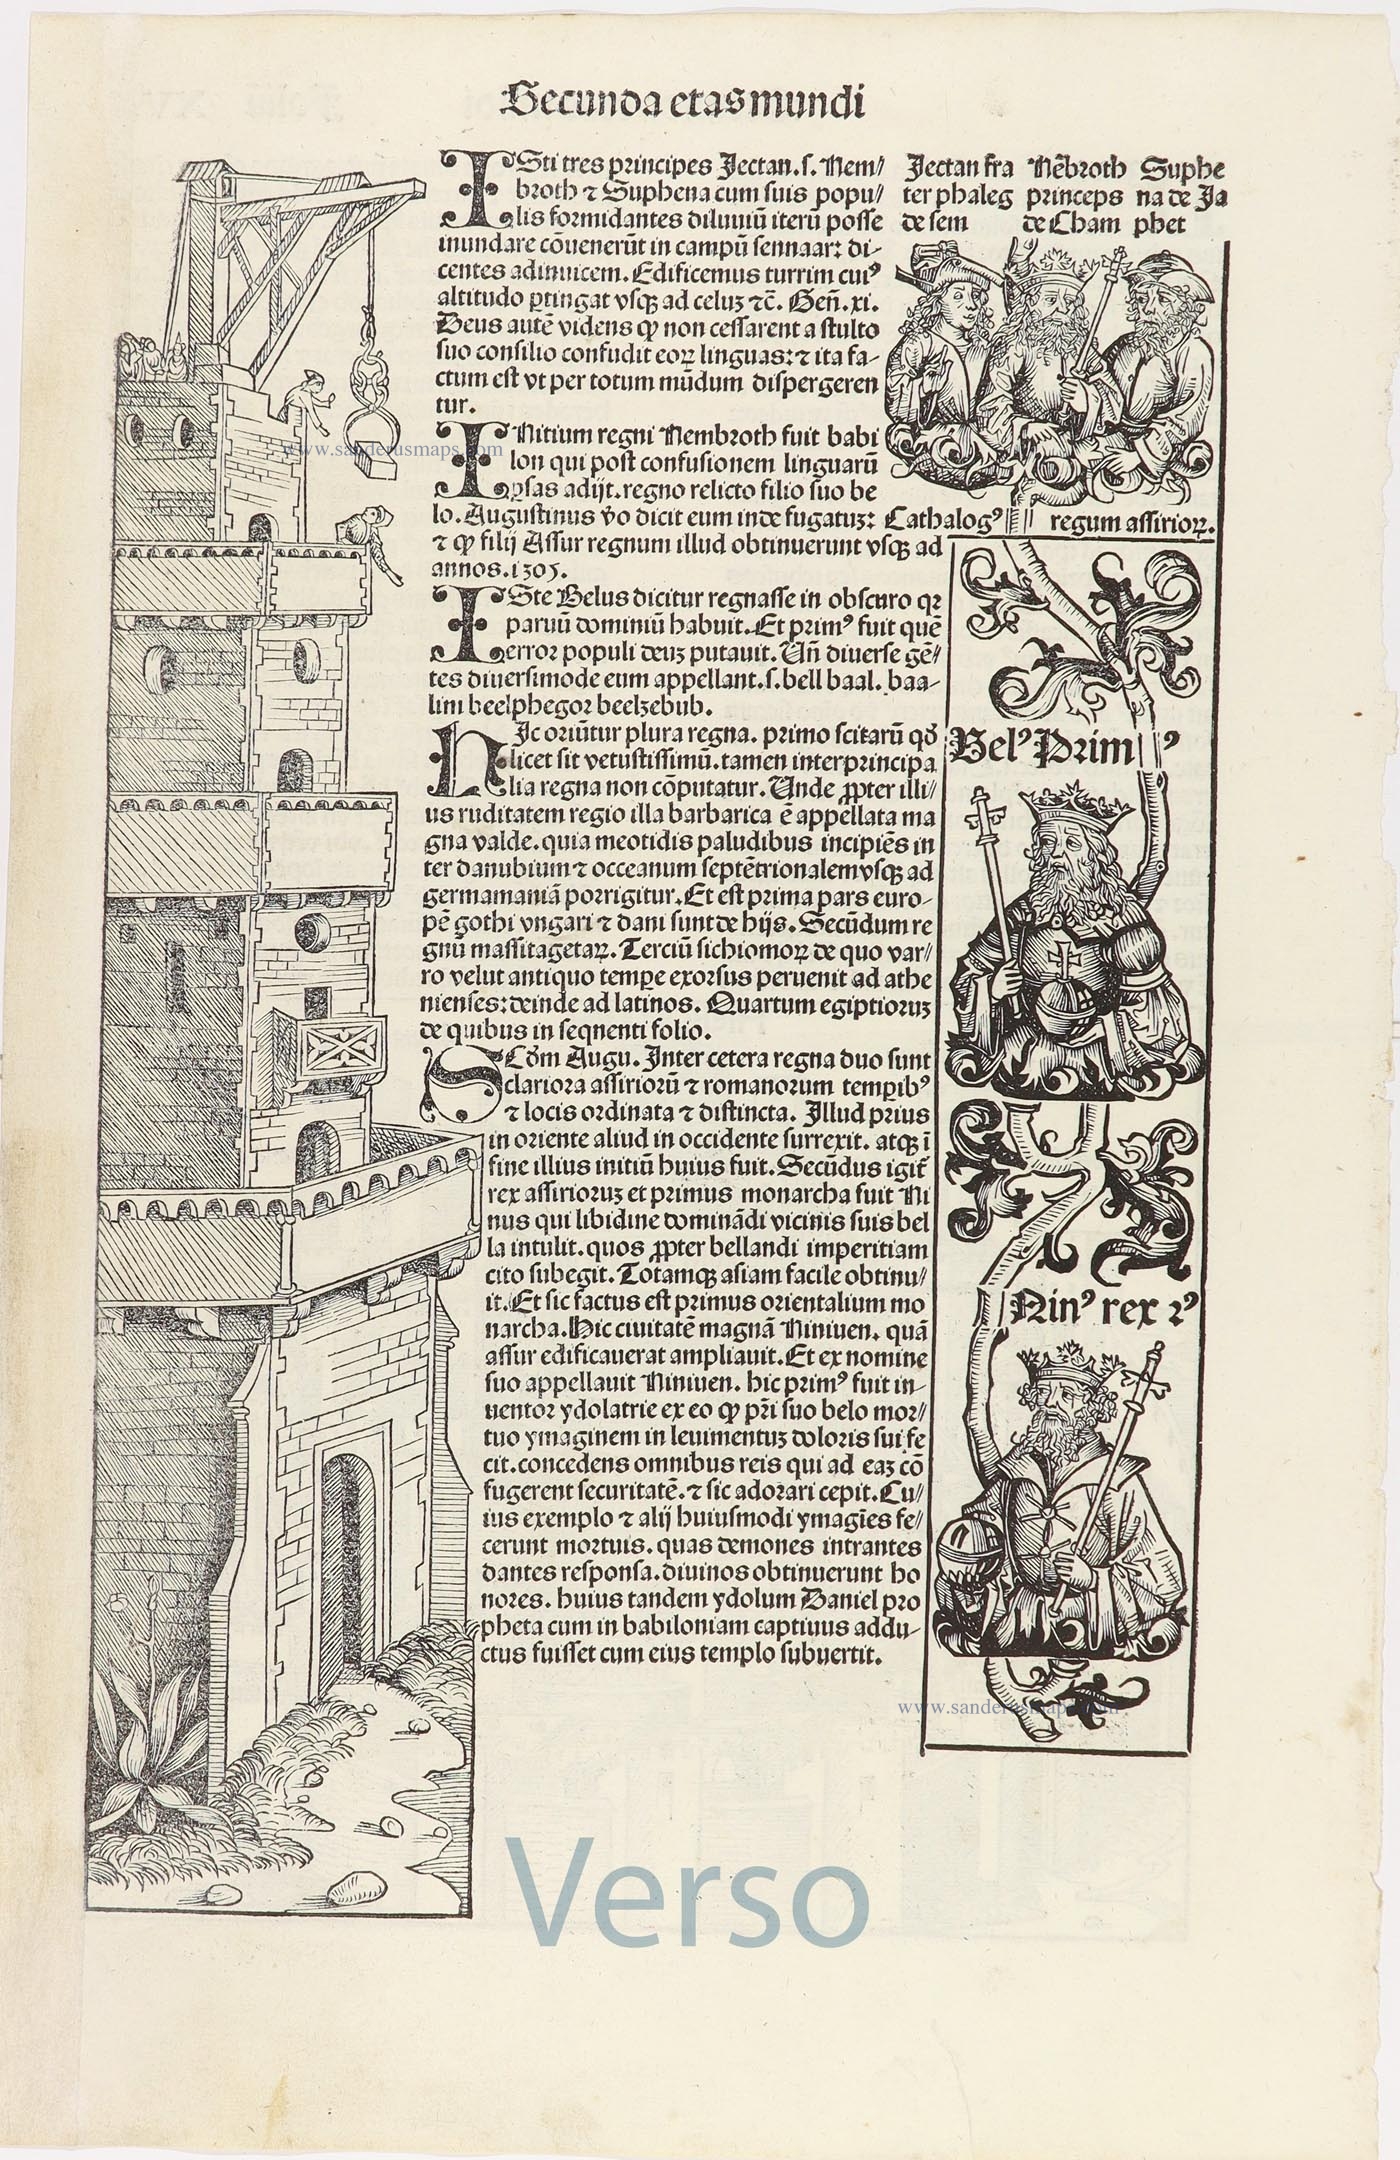 Secunda etas mundi
ISti tres principes Jectan.s. Nem//
broth ⁊ Suphena cum suis popu//
lis formidantes diluuiū iterū posse
inundare cōuenerūt in campū sennaar: di-
centes adinuicem. Edificemus turrim cuiꝰ
altitudo ꝑtingat vsqꝫ ad celuꝫ ⁊c̄. Geñ. xi.
Deus autē videns ꝙ non cessarent a stulto
suo consilio confudit eoꝝ linguas: ⁊ ita fa-
ctum est vt per totum mūdum dispergeren
tur.
INitium regni Nembroth fuit babi
lon qui post confusionem linguarū
ꝑsas adijt. regno relicto filio suo be
lo. Augustinus v̄o dicit eum inde fugatuꝫ:
⁊ ꝙ filij Assur regnum illud obtinuerunt vsqꝫ ad
annos.1305.
ISte Belus dicitur regnasse in obscuro qꝛ
paruū dominiū habuit. Et primꝰ fuit quē
error populi deuꝫ putauit. Un̄ diuerse gē//
tes diuersimode eum appellant.s. bell baal. baa-
lim beelphegor beelzebub.
HIc oriūtur plura regna. primo scitarū qđ
licet sit vetustissimū. tamen inter principa
lia regna non cōputatur. Unde ꝓpter illi//
us ruditatem regio illa barbarica ē appellata ma
gna valde. quia meotidis paludibus incipiēs in
ter danubium ⁊ occeanum septētrionalem vsqꝫ ad
germamaniā porrigitur. Et est prima pars euro-
pē gothi vngari ⁊ dani sunt de hijs. Secūdum re
gnū massitagetaꝝ. Terciū sichiomoꝝ de quo var//
ro velut antiquo temꝑe exorsus peruenit ad athe
nienses: deinde ad latinos. Quartum egiptioruꝫ
de quibus in seqnenti folio.
SCđm Augu. Inter cetera regna duo sunt
clariora assiriorū ⁊ romanorum temꝑibꝰ
⁊ locis ordinata ⁊ distincta. Illud prius
in oriente aliud in occidente surrexit. atqꝫ ī
fine illius initiū huius fuit. Secūdus igit̄
rex assirioruꝫ et primus monarcha fuit Ni
nus qui libidine domināndi vicinis suis bel
la intulit. quos ꝓpter bellandi imperitiam
cito subegit. Totamqꝫ asiam facile obtinu//
it. Et sic factus est primus orientalium mo
narcha. Hic ciuitatē magnā Niniuen. quā
assur edificauerat ampliauit. Et ex nomine
suo appellauit Niniuen. hic primꝰ fuit in-
uentor ydolatrie ex eo ꝙ pr̄i suo belo mor//
tuo ymaginem in leuimentuꝫ doloris sui fe
cit. concedens omnibus reis qui ad eaꝫ cō
fugerent securitatē. ⁊ sic adorari cepit. Cu//
ius exemplo ⁊ alij huiusmodi ymagīes fe//
cerunt mortuis. quas demones intrantes
dantes responsa. diuinos obtinuerunt ho
nores. huius tandem ydolum Daniel pro
pheta cum in babiloniam captiuus addu-
ctus fuisset cum eius templo subuertit.
Jectan fra Nēbroth Suphe
ter phaleg princeps na de Ja
de sem de Cham phet
Cathalogꝰ regum assirioꝝ.
Belꝰ Primꝰ
Ninꝰ rex 2ꝰ
www.sanderusmaps.com
www.sanderusmaps.com
Verso